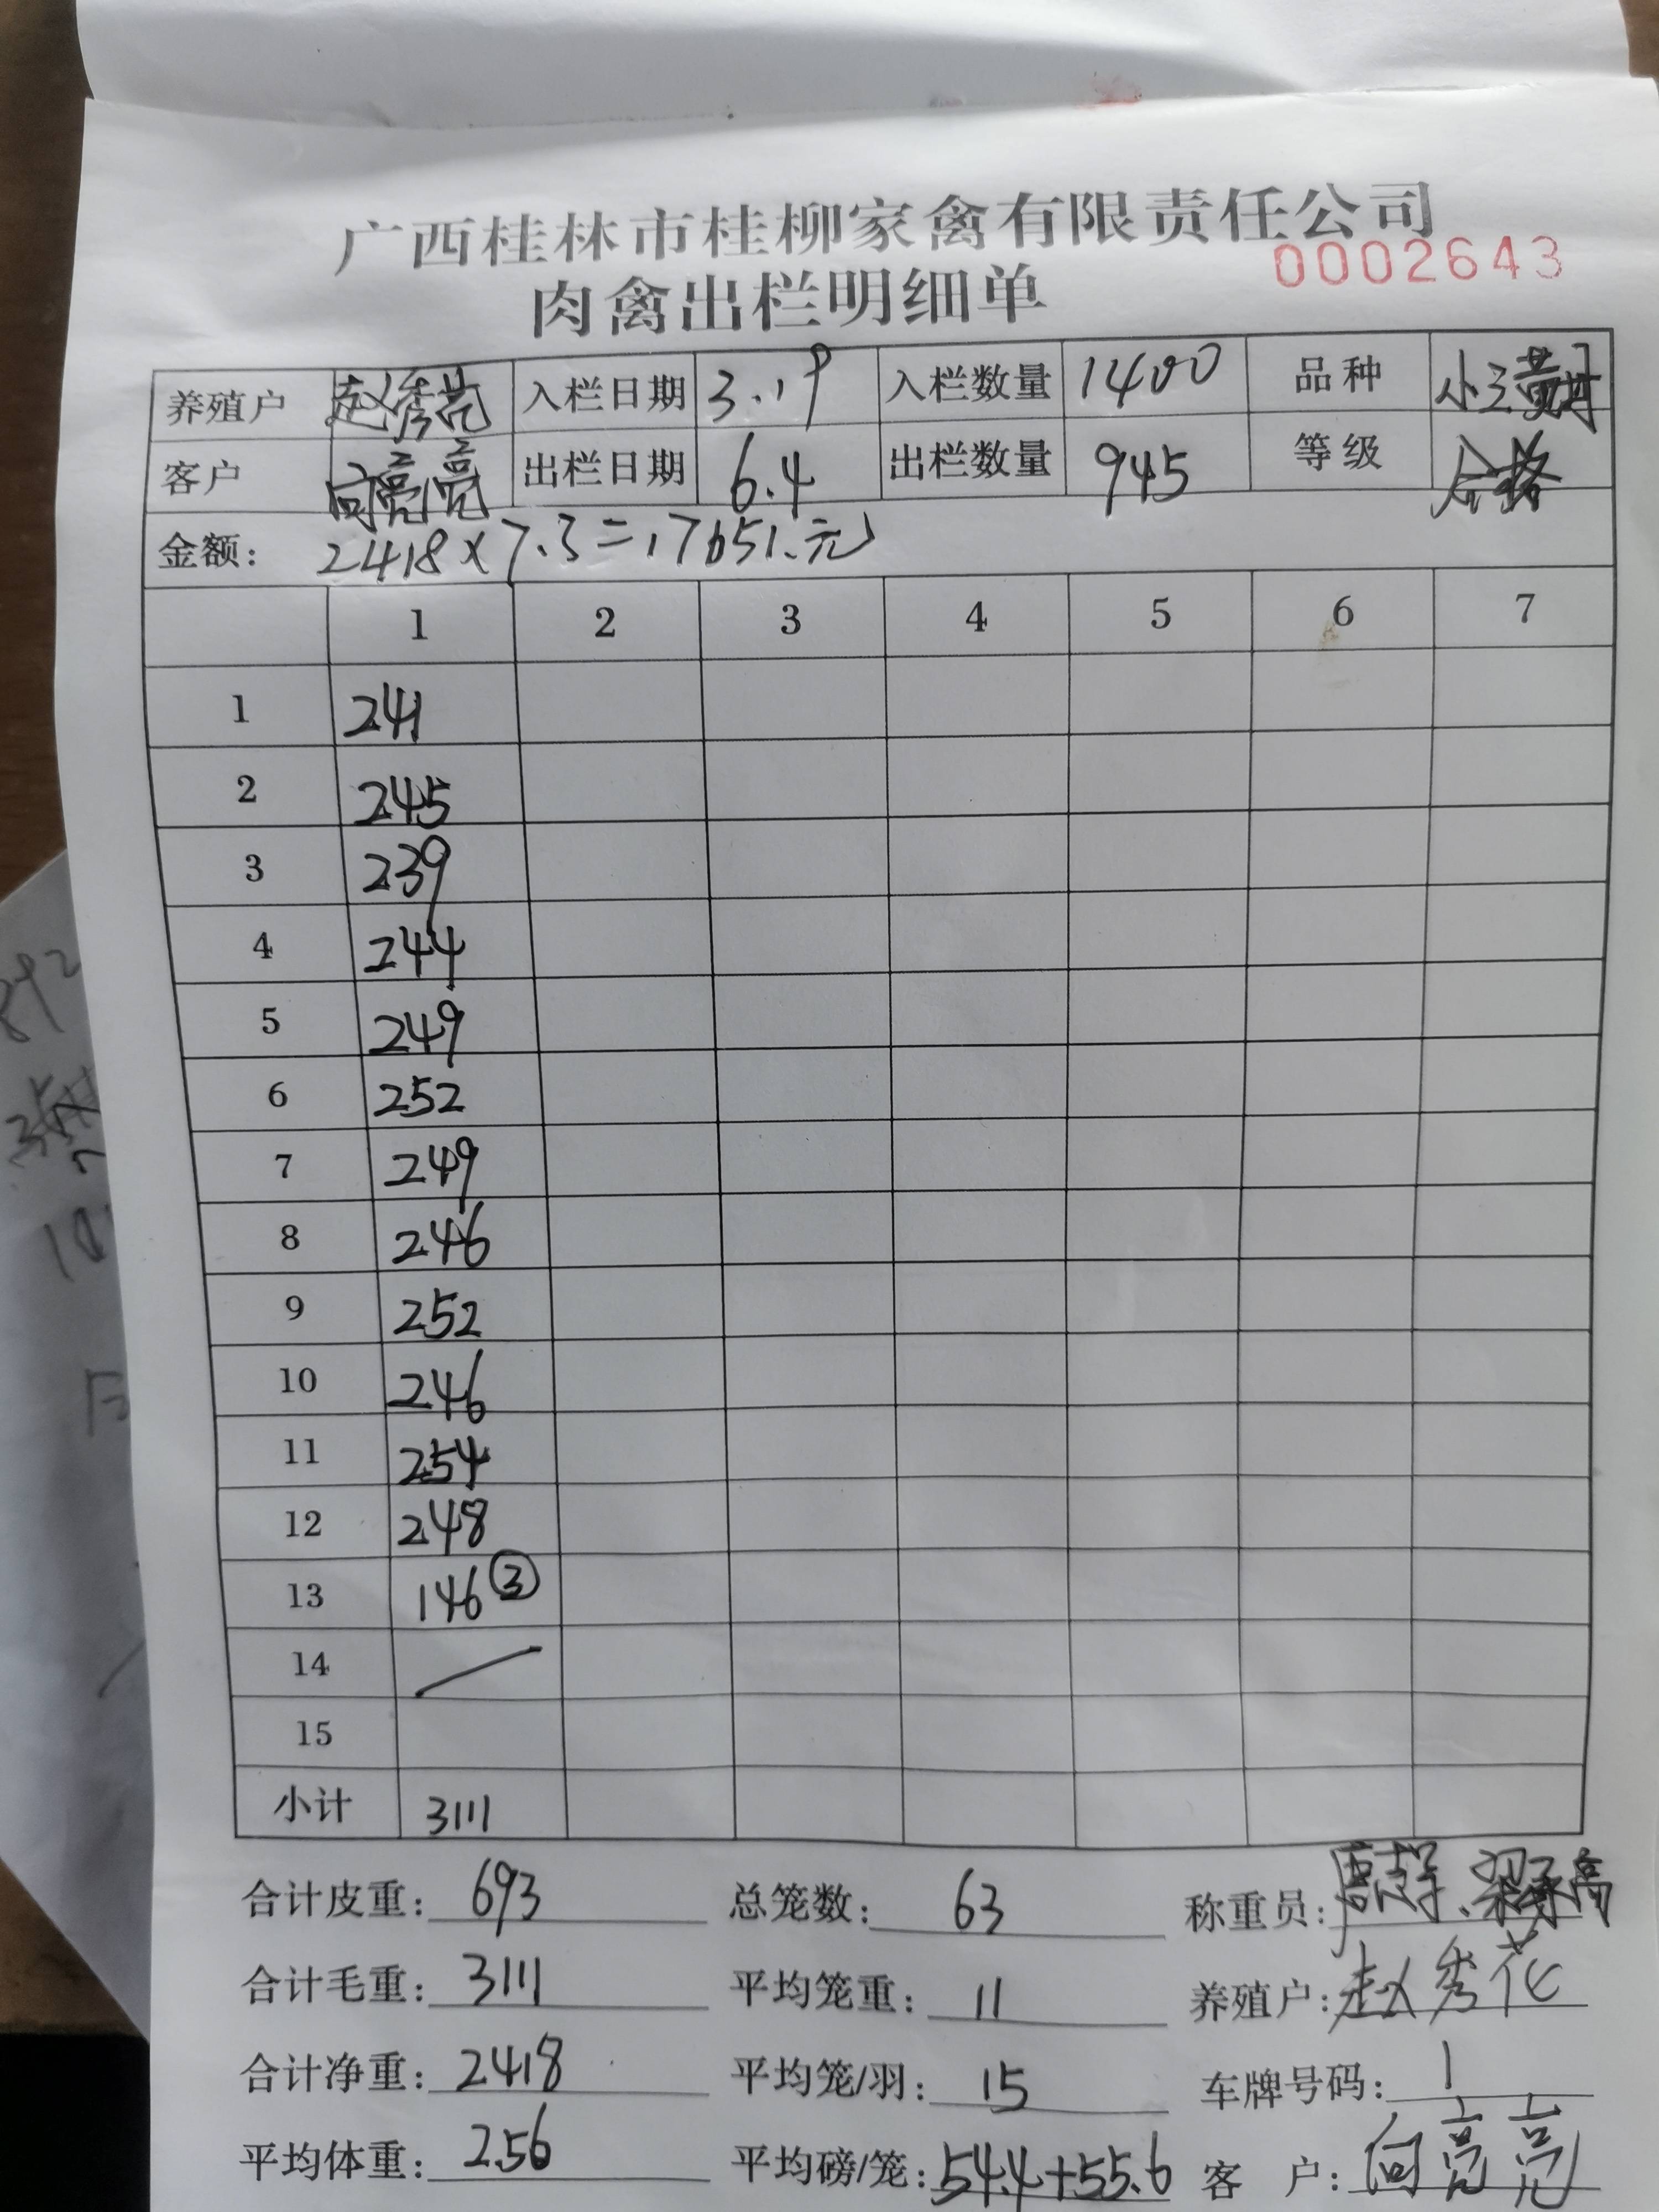 广西桂林市桂柳家禽有限责任公司
0002643
肉禽出栏明细单
养殖户 赵秀花 入栏日期 3.19 入栏数量 1400 品种
客户 向亮亮 出栏日期 6.4 出栏数量 945 等级 合格
金额: 2418×7.3=17651.元
1 2 3 4 5 6 7
1 241
2 245
3 239
4 244
5 249
6 252
7 249
8 246
9 252
10 246
11 254
12 248
13 146③
14
15
小计 3111
合计皮重: 693 总笼数: 63 称重员:
合计毛重: 3111 平均笼重: 11 养殖户: 赵秀花
合计净重: 2418 平均笼/羽: 15 车牌号码: 1
平均体重: 2.56 平均磅/笼: 54.4+55.6 客 户: 向亮亮